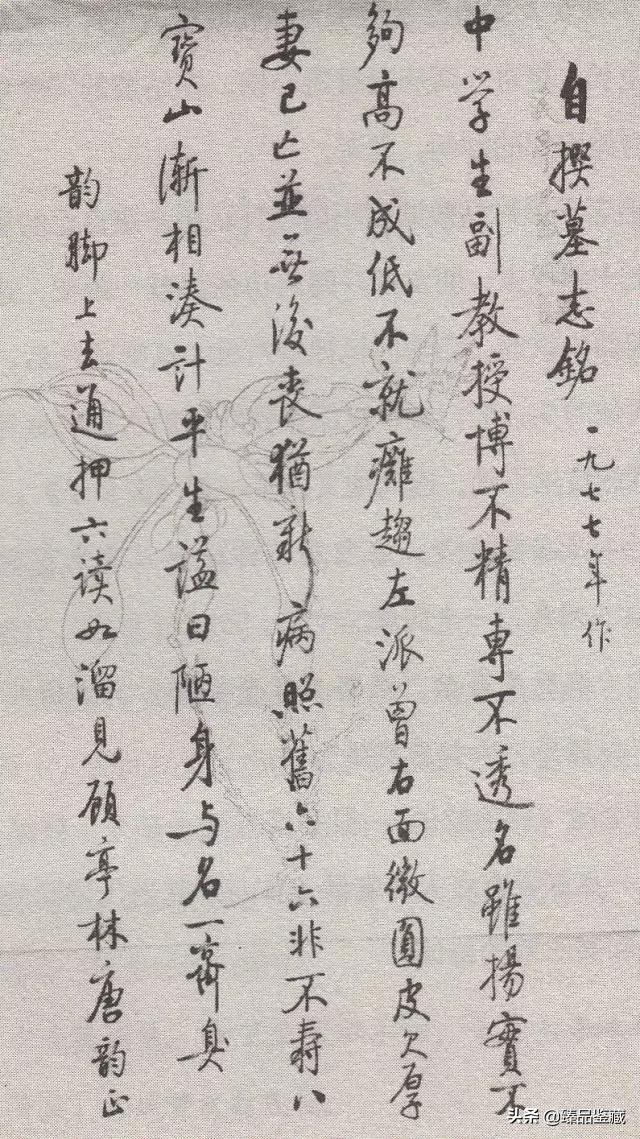 自撰墓志銘 一九七七年作
中学生副教授博不精專不透名雖揚實不
夠高不成低不就癱趨左派曾右面微圓皮欠厚
妻已亡並無後喪猶新病照舊六十六非不壽八
寶山漸相湊計平生謚曰陋身与名一齊臭
韵脚上去通押六读如溜見顾亭林唐韵正
头条 @臻品鉴藏